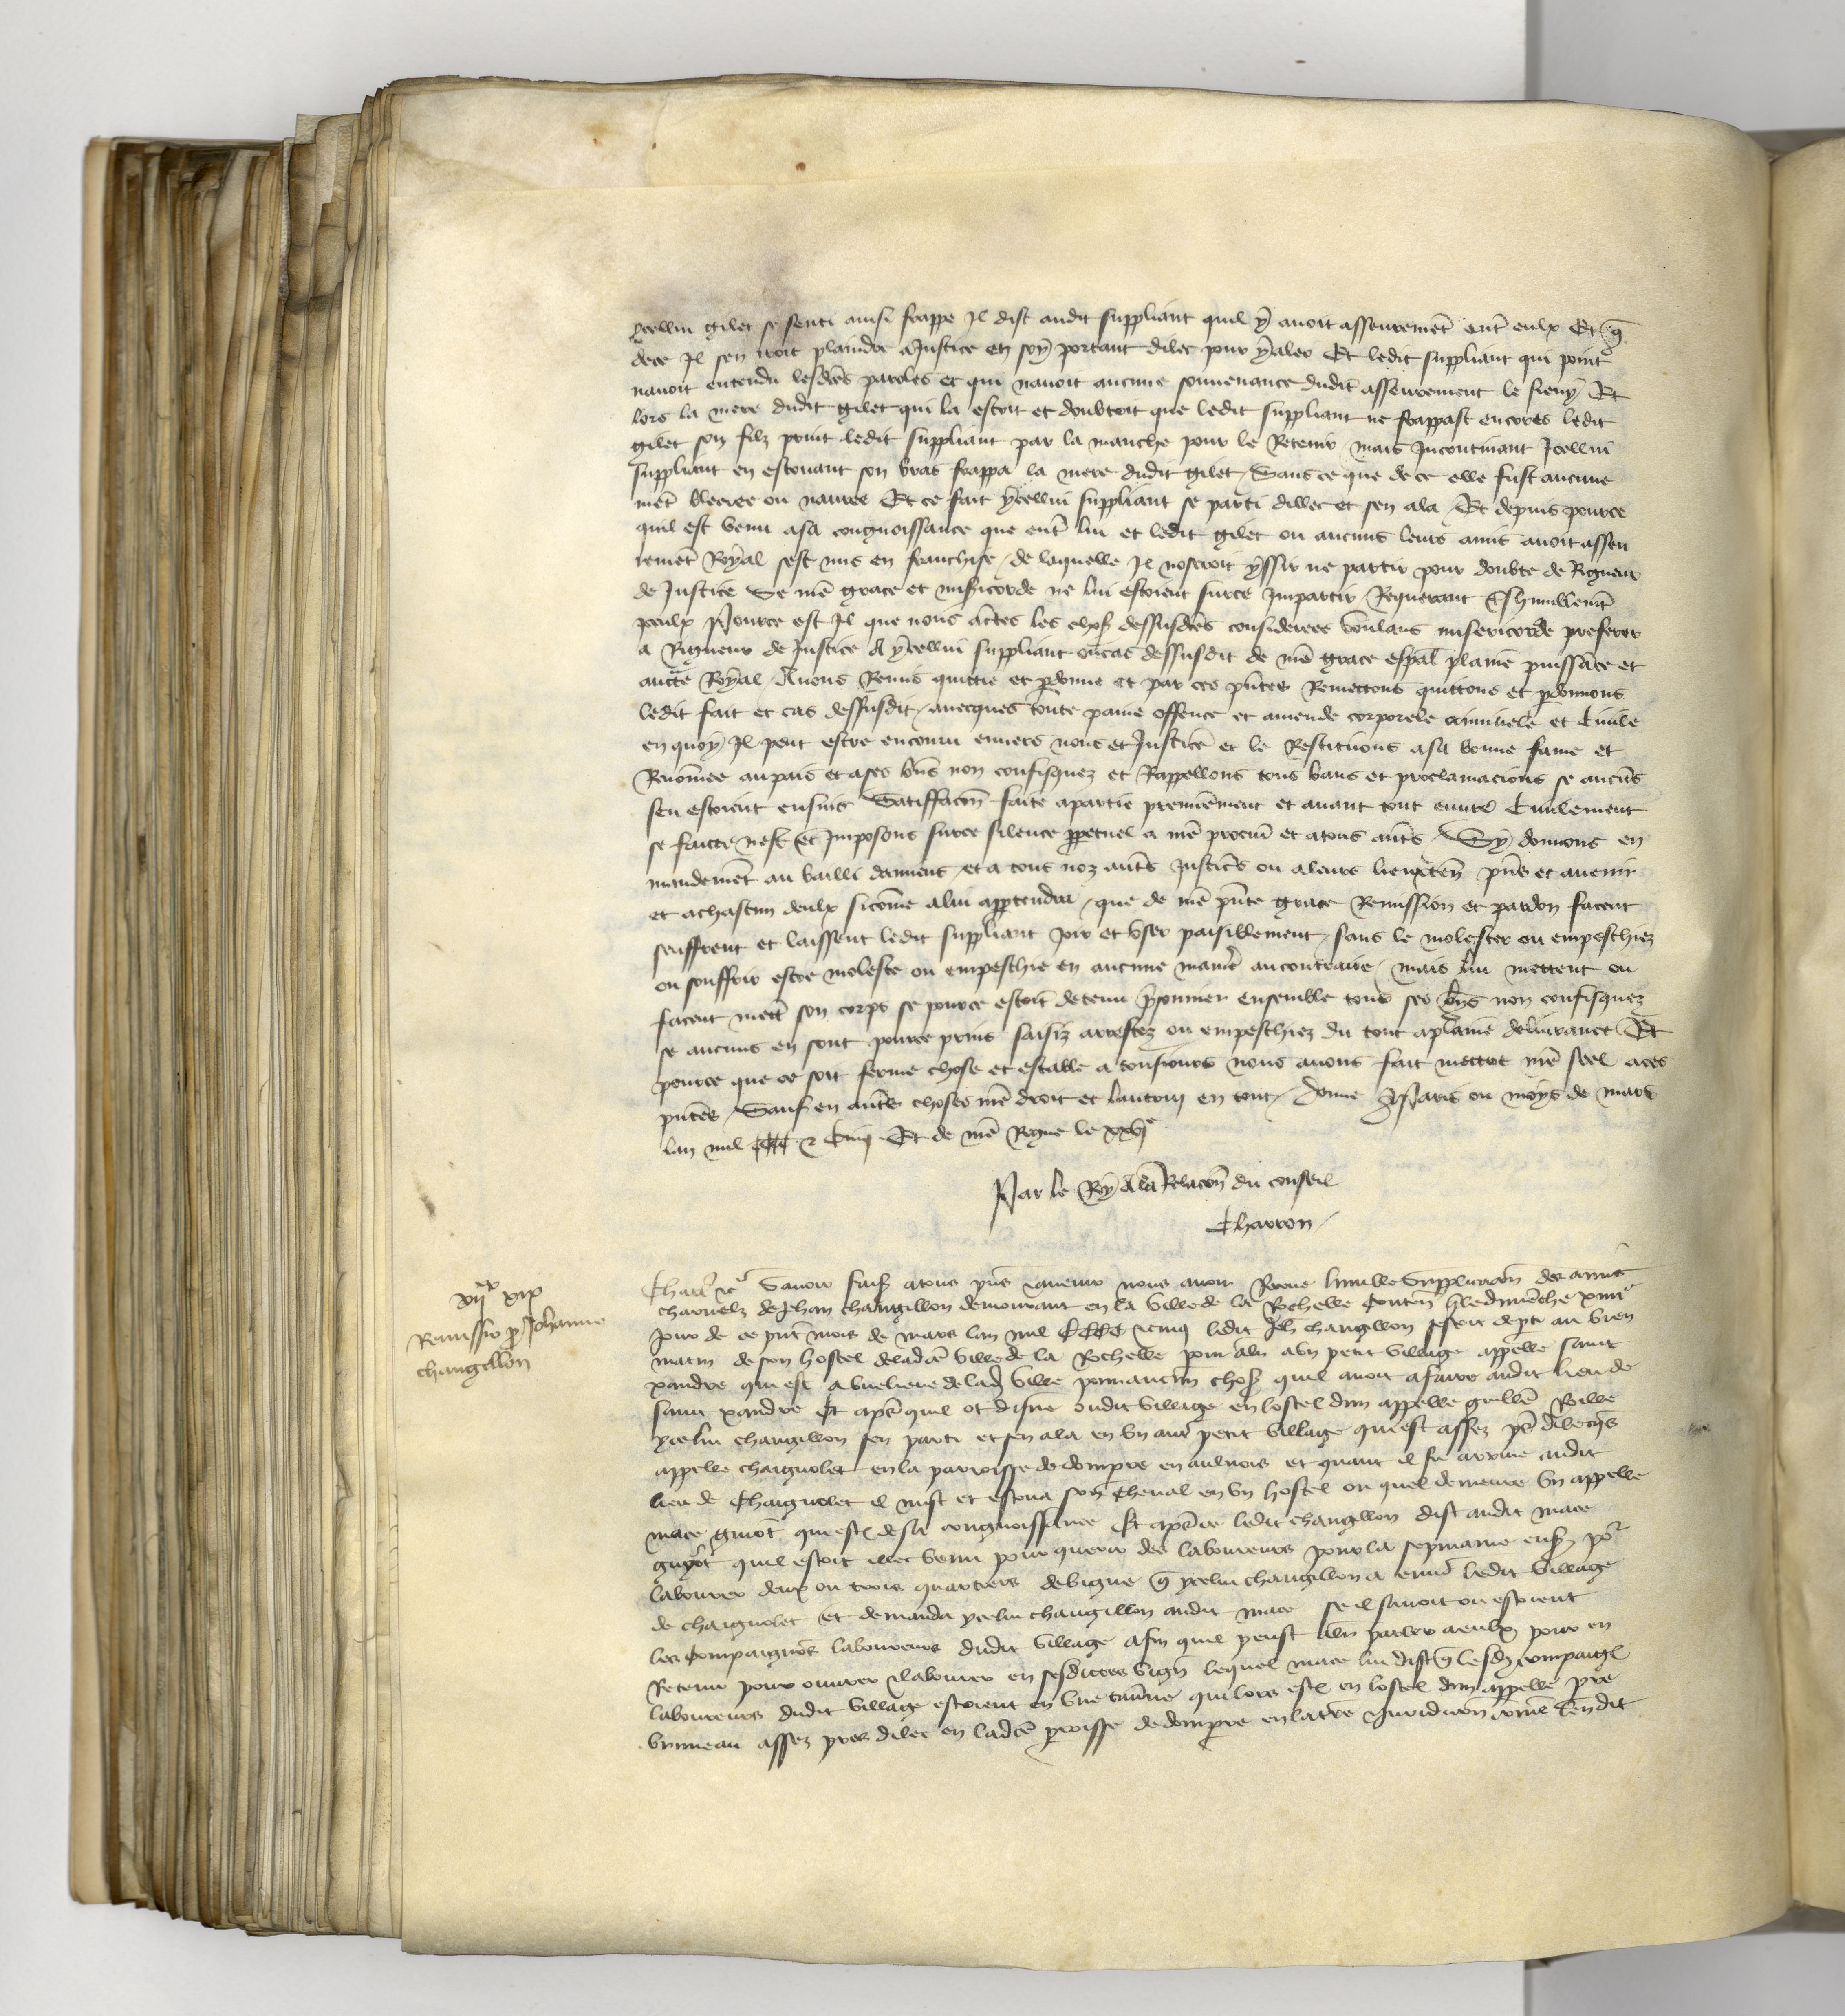 ycellui gilet se senti ainsi frappe Il dist audit suppliant quil y avoit asseuremēt entr eulx Et q̄
dece Il sen iroit plaindre a Justice en soy portant dilec pour y aler Et ledit suppliant qui point
navoit entendu lesdēs paroles et qui navoit aucune souvenance dudit asseurement le sievy Et
lors la mere dudit gilet qui la estoit et doubtoit que ledit suppliant ne frappast encores ledit
gilet son filz print ledit suppliant par la manche pour le Retenir mais Incontinant Icellui
suppliant en escouant son bras frappa la mere dudit gilet / Sans ce que de ce elle fust aucune
mēt bleciee ou navree Et ce fait ycellui suppliant se parti dillec et sen ala / Et depuis pource
quil est venu asa congnoissance que entr lui et ledit gilet ou aucuns leurs amis avoit asseu
remēt Royal sest mis en franchise / de laquelle Il noseroit yssir ne partir pour doubte de Rigueur
de Justice Se nr̄e grace et misicorde ne lui estoient surce Impartir Requerant humblemēt
yceulx Pource est Il que nous actēs les choses dessusdēs considerees voulans misericorde preferer
a Rigueur de Justice A ycellui suppliant oucas dessusdit de nr̄e grace espāl plaine puissāce et
auctē Royal / Avons Remis quittie et pdonne et par ces pn̄tes Remettons quittons et pdonnons
ledit fait et cas dessusdit / avecques toute paine offence et amende corporele criminele et Civile
en quoy Il peut estre encouru envers nous et Justice et le Restituons asa bonne fame et
Renōmee au pais et ases biēs non confisquez et Rappellons tous bans et proclamacions se aucūs
sen estoient ensuis Satiffacōn faite a partie premieremēnt et avant tout euvre Civilement
se faicte nest et Imposons surce silence ppetuel a nr̄e procur̄ et atous autrēs / Sy donnons en
mandemēt au bailli damiens et a tous noz autrēs Justiciers ou aleurs lieuxten̄ pn̄s et avenir
et achascun deulx sicōme alui appartendra / que de nr̄e pn̄te grace Remission et pardon facent
seuffrent et laissent ledit suppliant joir et user paisiblement / sans le molester ou empeschiez
ou souffrir estre moleste ou empeschie en aucune manier̄e au contraire / mais lui mettent ou
facent mettr̄ son corps se pource estoit detenu p̄sonnier ensemble tous ses biēs non confisquez
se aucuns en sont pource prins saisiz arrestez ou empeschiez du tout aplaine delivrance Et
pource que ce soit ferme chose et estable a tousiours nous avons fait mettre nr̄e seel aces
pn̄tēs / Sauf en autrēs choses nr̄e droit et lautruy en tout / Donne A Paris ou moys de mars
lan mil CCCC & Cinq Et de nr̄e Regne le xxvj͏ᵉ
Par le Roy A la Relacōn du conseil
Charron /
vijˣˣ xix
Remissio p Johanne
changillon
Charl̄ &c Savoir faisō atous pn̄s & avenir nous avoir Receue lumble Supplicacōn des amis
charnelz de Jehan changillon demourant en la ville de la Rochelle Conten̄ q̄ le dimēche xiiijᵉ
jour de ce pnt mois de mars lan mil CCCC & cinq ledit Jeh̄ changillon sestoit dep̄ti au bien
matin de son hostel de ladcē ville de la Rochelle pour aler a un petit village appelle saint
xandre qui est a une lieue de lad ville pour aucun̄ chosē quil avoit a faire audit lieu de
saint xandre Et apr̄s quil ot disne oudit village en lostel dun appelle guillē Rille
ycelui changillon sen parti et sen ala en un autr̄ petit village qui est assez pr̄s dilecqs
appelle chaignolet en la parroisse de dompre en aulnois et quant il fu arrive audit
lieu de Chaignolet il mist et estoua son cheval en un hostel ou quel demeure un appelle
mace guiot qui est de sa congnoissance Et apr̄s ce ledit changillon dist audit mace
guyot quil estoit illec venu pour querir des laboureurs pour la sepmaine ens pōr
labourer deux ou trois quartiers de vigne q̄ ycelui changillon a envir̄ ledit village
de chaignolet et demanda ycelui changillon audit mace se il savoit ou estoient
les Compaignōs laboureurs dudit village afin quil peust parler a eulx pour en
Retenir pour ouvrer & labourer en sesdictes vign̄ lequel mace lui dist q̄ lesd compaigē
laboureurs dudit village estoient en une taverne qui lors est en lostel dun appelle pr̄e
bruneau assez pres dilec en ladcē p̄roisse de dompre en laterrē & Juridicōn cōmē lendit